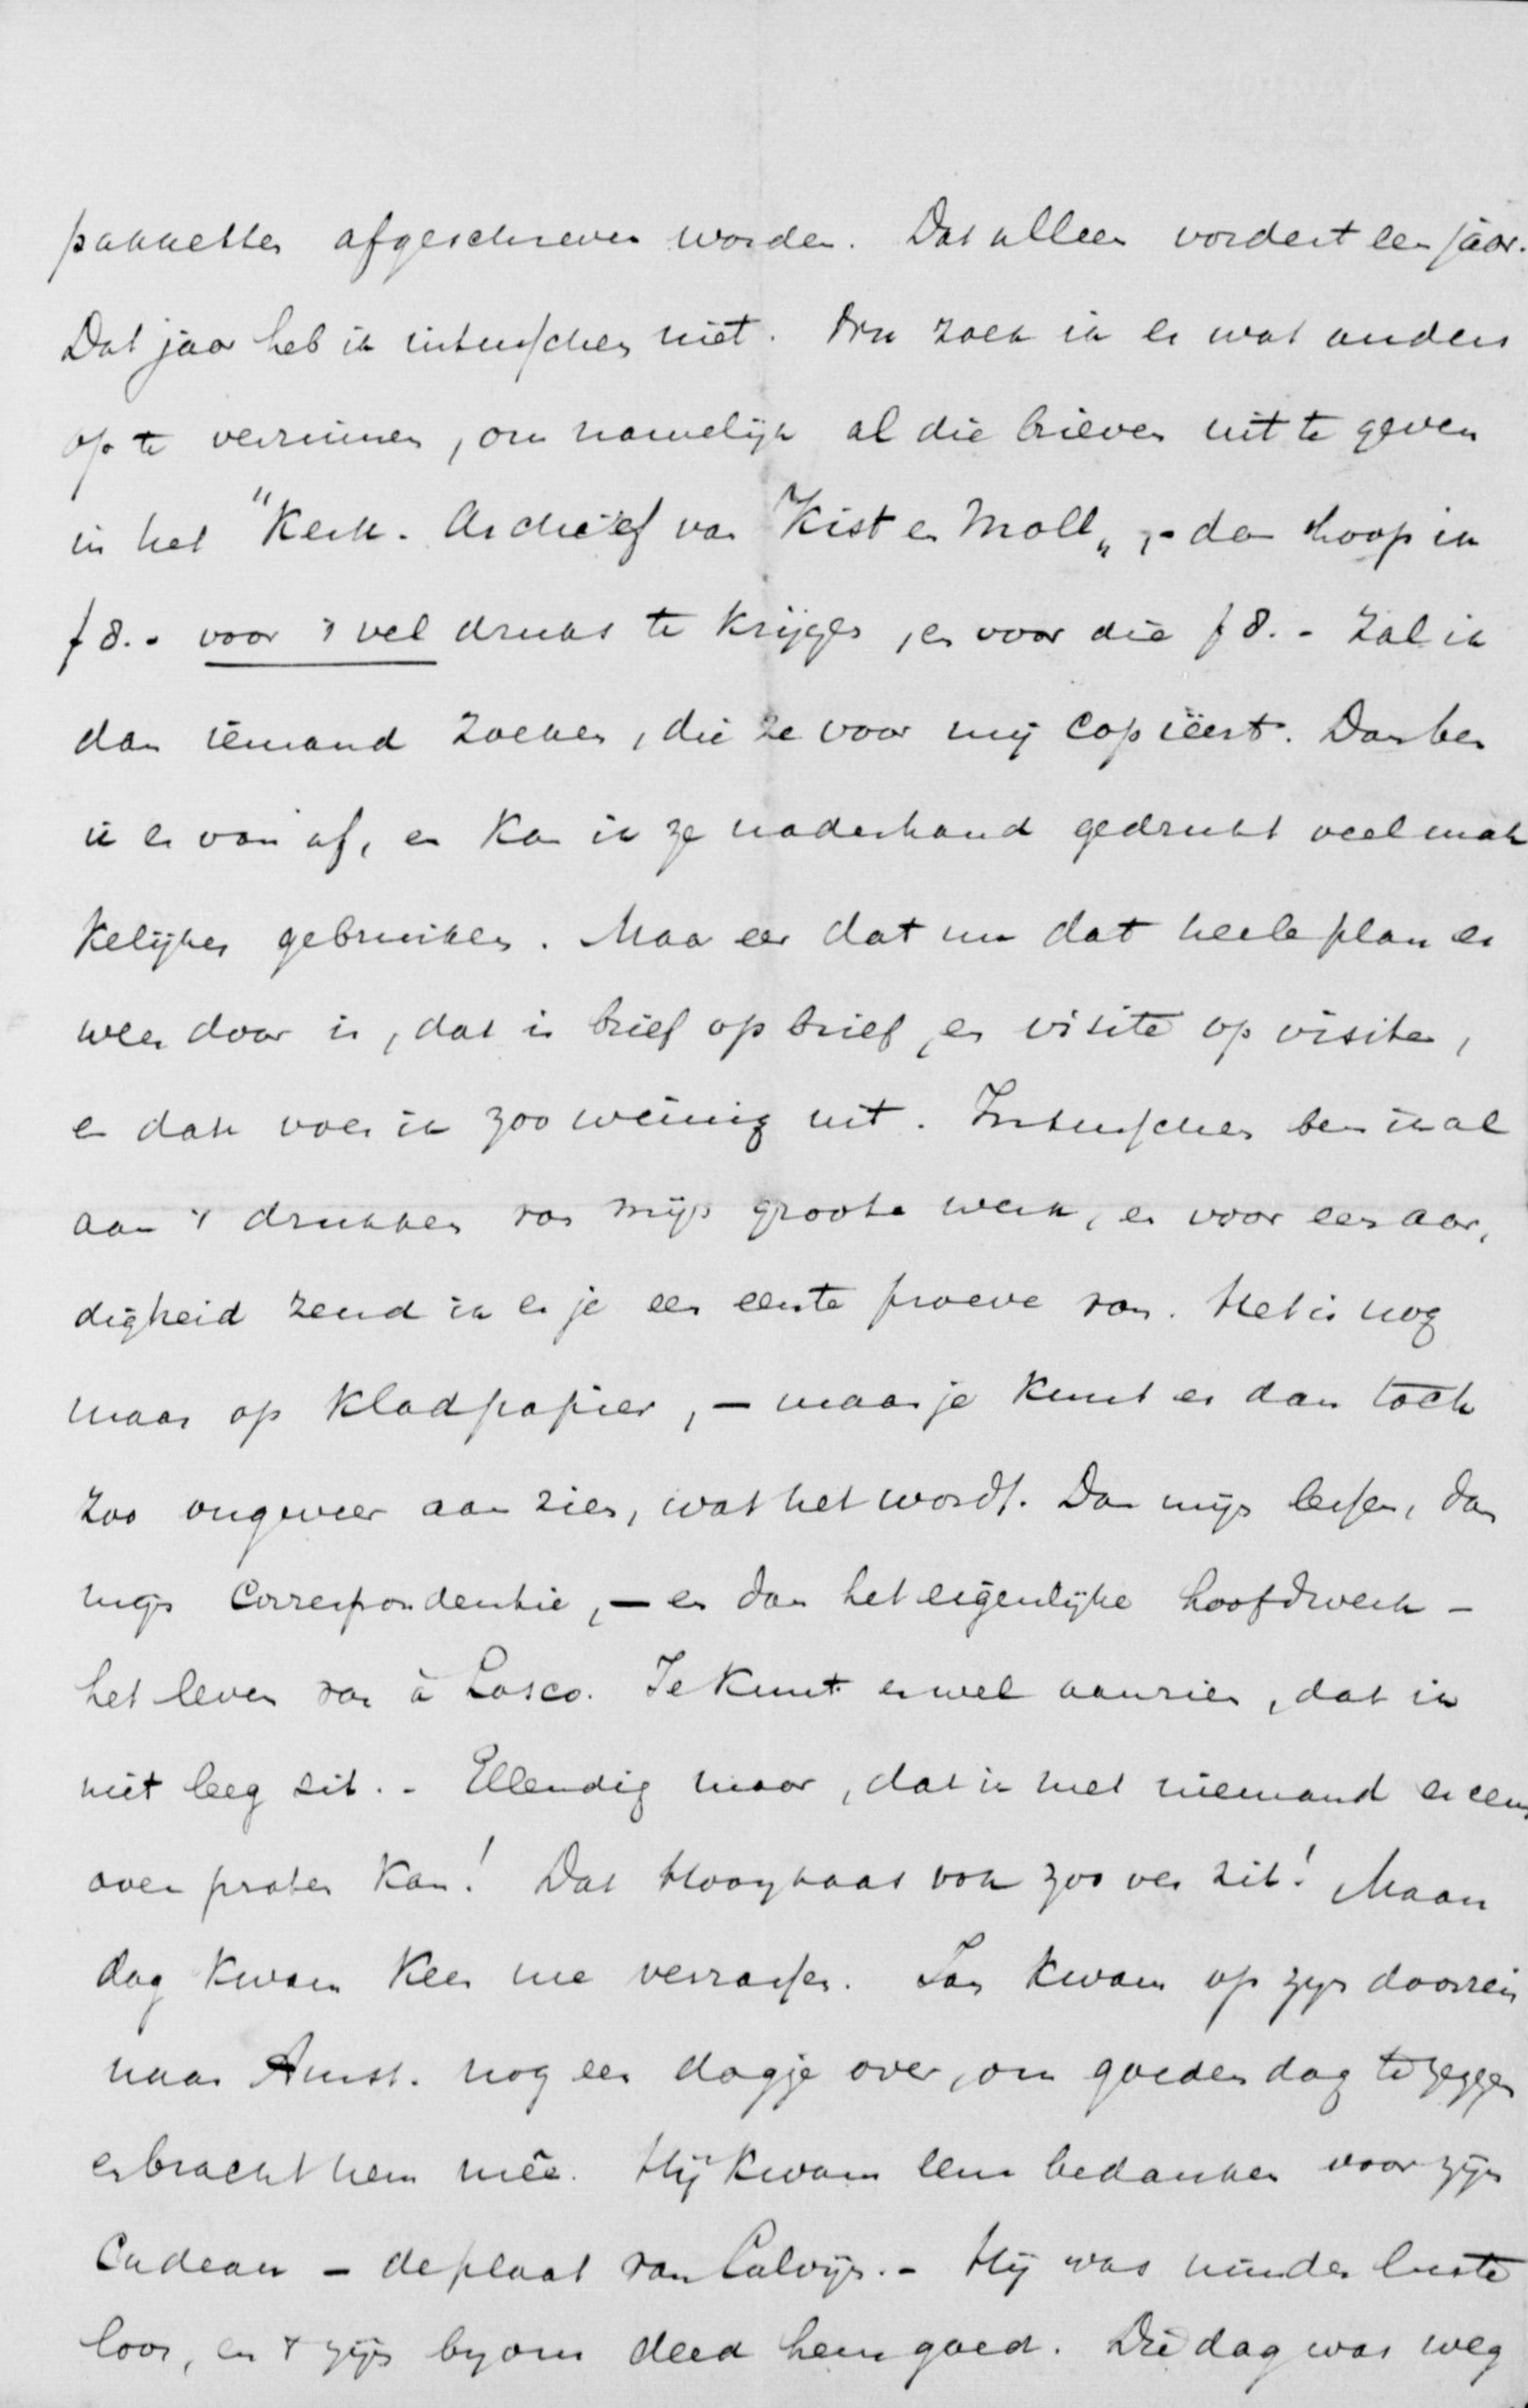 pakketten afgeschreven worden. Dat alleen vordert een jaar.
Dat jaar heb ik intusschen niet. Nu zoek ik er wat anders
op te verzinnen, om namelijk al die brieven uit te geven
in het "Kerk. Archief van Kist en Moll„, - dan hoop ik
f 8.- voor 't vel druks te krijgen, en voor die f 8.- zal ik
dan iemand zoeken, die ze voor mij copiëert. Dan ben
ik er van af, en kan ik ze naderhand gedrukt veel mak
kelijker gebruiken. Maar eer dat nu dat heele plan er
weer door is, dat is brief op brief, en visite op visite,
en dan voer ik zoo weinig uit. Intusschen ben ik al
aan 't drukken van mijn groote werk, en voor een aar,
digheid zend ik er je een eerste proeve van. Het is nog
maar op kladpapier, — maar je kunt er dan toch
zoo ongeveer aan zien, wat het wordt. Dan mijn lessen, dan
mijn Correspondentie, — en dan het eigenlijke hoofdwerk -
het leven van à Lasco. Je kunt er wel aan zien, dat ik
niet leeg zit. - Ellendig maar, dat ik met niemand er eens
over praten kan! Dat Hooykaas ook zoo ver zit! Maan
dag kwam Kees me verrassen. Jan kwam op zijn doorreis
naar Amst. nog een dagje over, om goeden dag te zeggen
en bracht hem meê. Hij kwam eens bedanken voor zijn
Cadeau - de plaat van Calvijn. - Hij was minder luste
loos, en 't zijn by ons deed hem goed. Die dag was weg